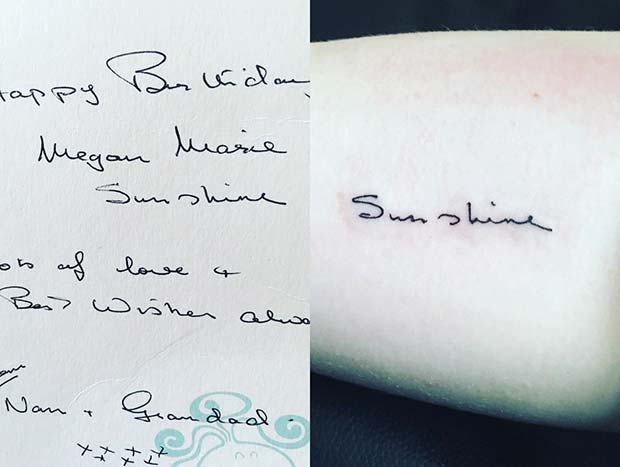 Happy Birthday
Megan Marie
Sunshine
Lots of love &
Best Wishes always
Nan + Grandad.
xxxx
Sunshine